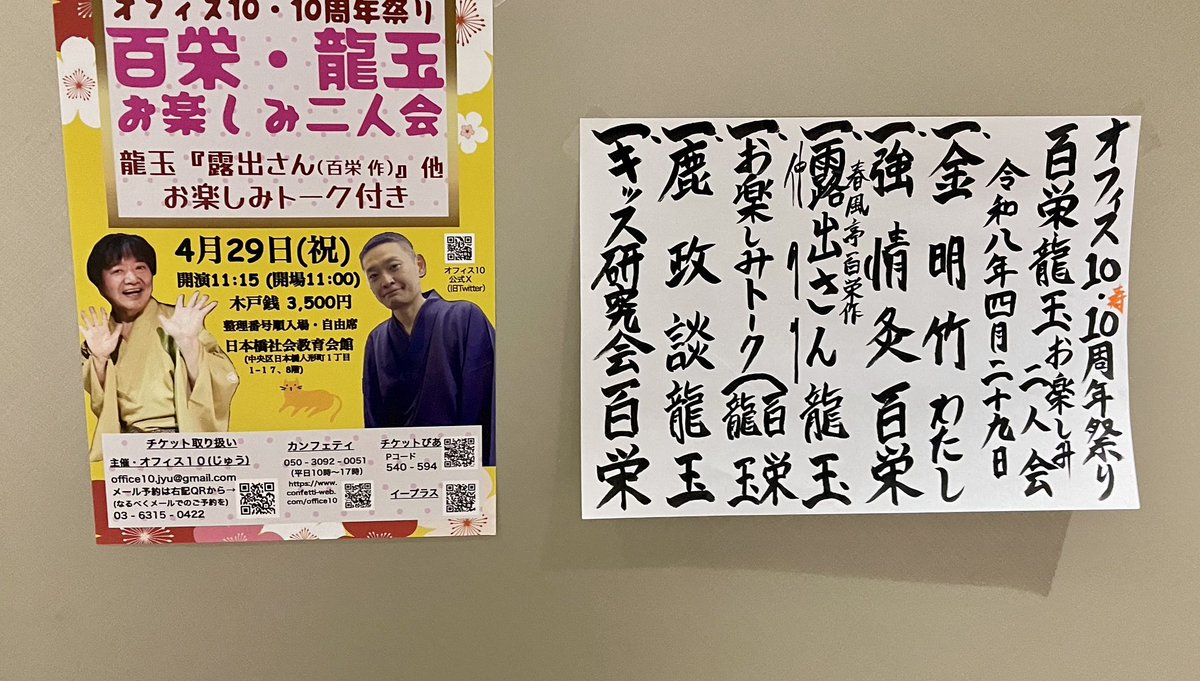 オフィス10・10周年祭り
百栄・龍玉
お楽しみ二人会
龍玉『露出さん(百栄 作)』他
お楽しみトーク付き
4月29日(祝)
開演11:15 (開場11:00)
木戸銭 3,500円
整理番号順入場・自由席
日本橋社会教育会館
(中央区日本橋人形町1丁目
1-17、8階)
オフィス10
公式X
(旧Twitter)
チケット取り扱い
主催・オフィス10(じゅう)
office10.jyu@gmail.com
メール予約は右記QRから→
(なるべくメールでのご予約を)
03-6315-0422
カンフェティ
050-3092-0051
(平日10時〜17時)
https://www.
confetti-web.
com/office10
チケットぴあ
Pコード
540-594
イープラス
オフィス10・10周年祭り
寿
百栄龍玉お楽しみ二人会
令和八年四月二十九日
一、金明竹 わたし
一、強情灸 百栄
春風亭百栄作
一、露出さん 龍玉
仲入り
一、お楽しみトーク(百栄 龍玉
一、鹿政談 龍玉
一、キッス研究会 百栄